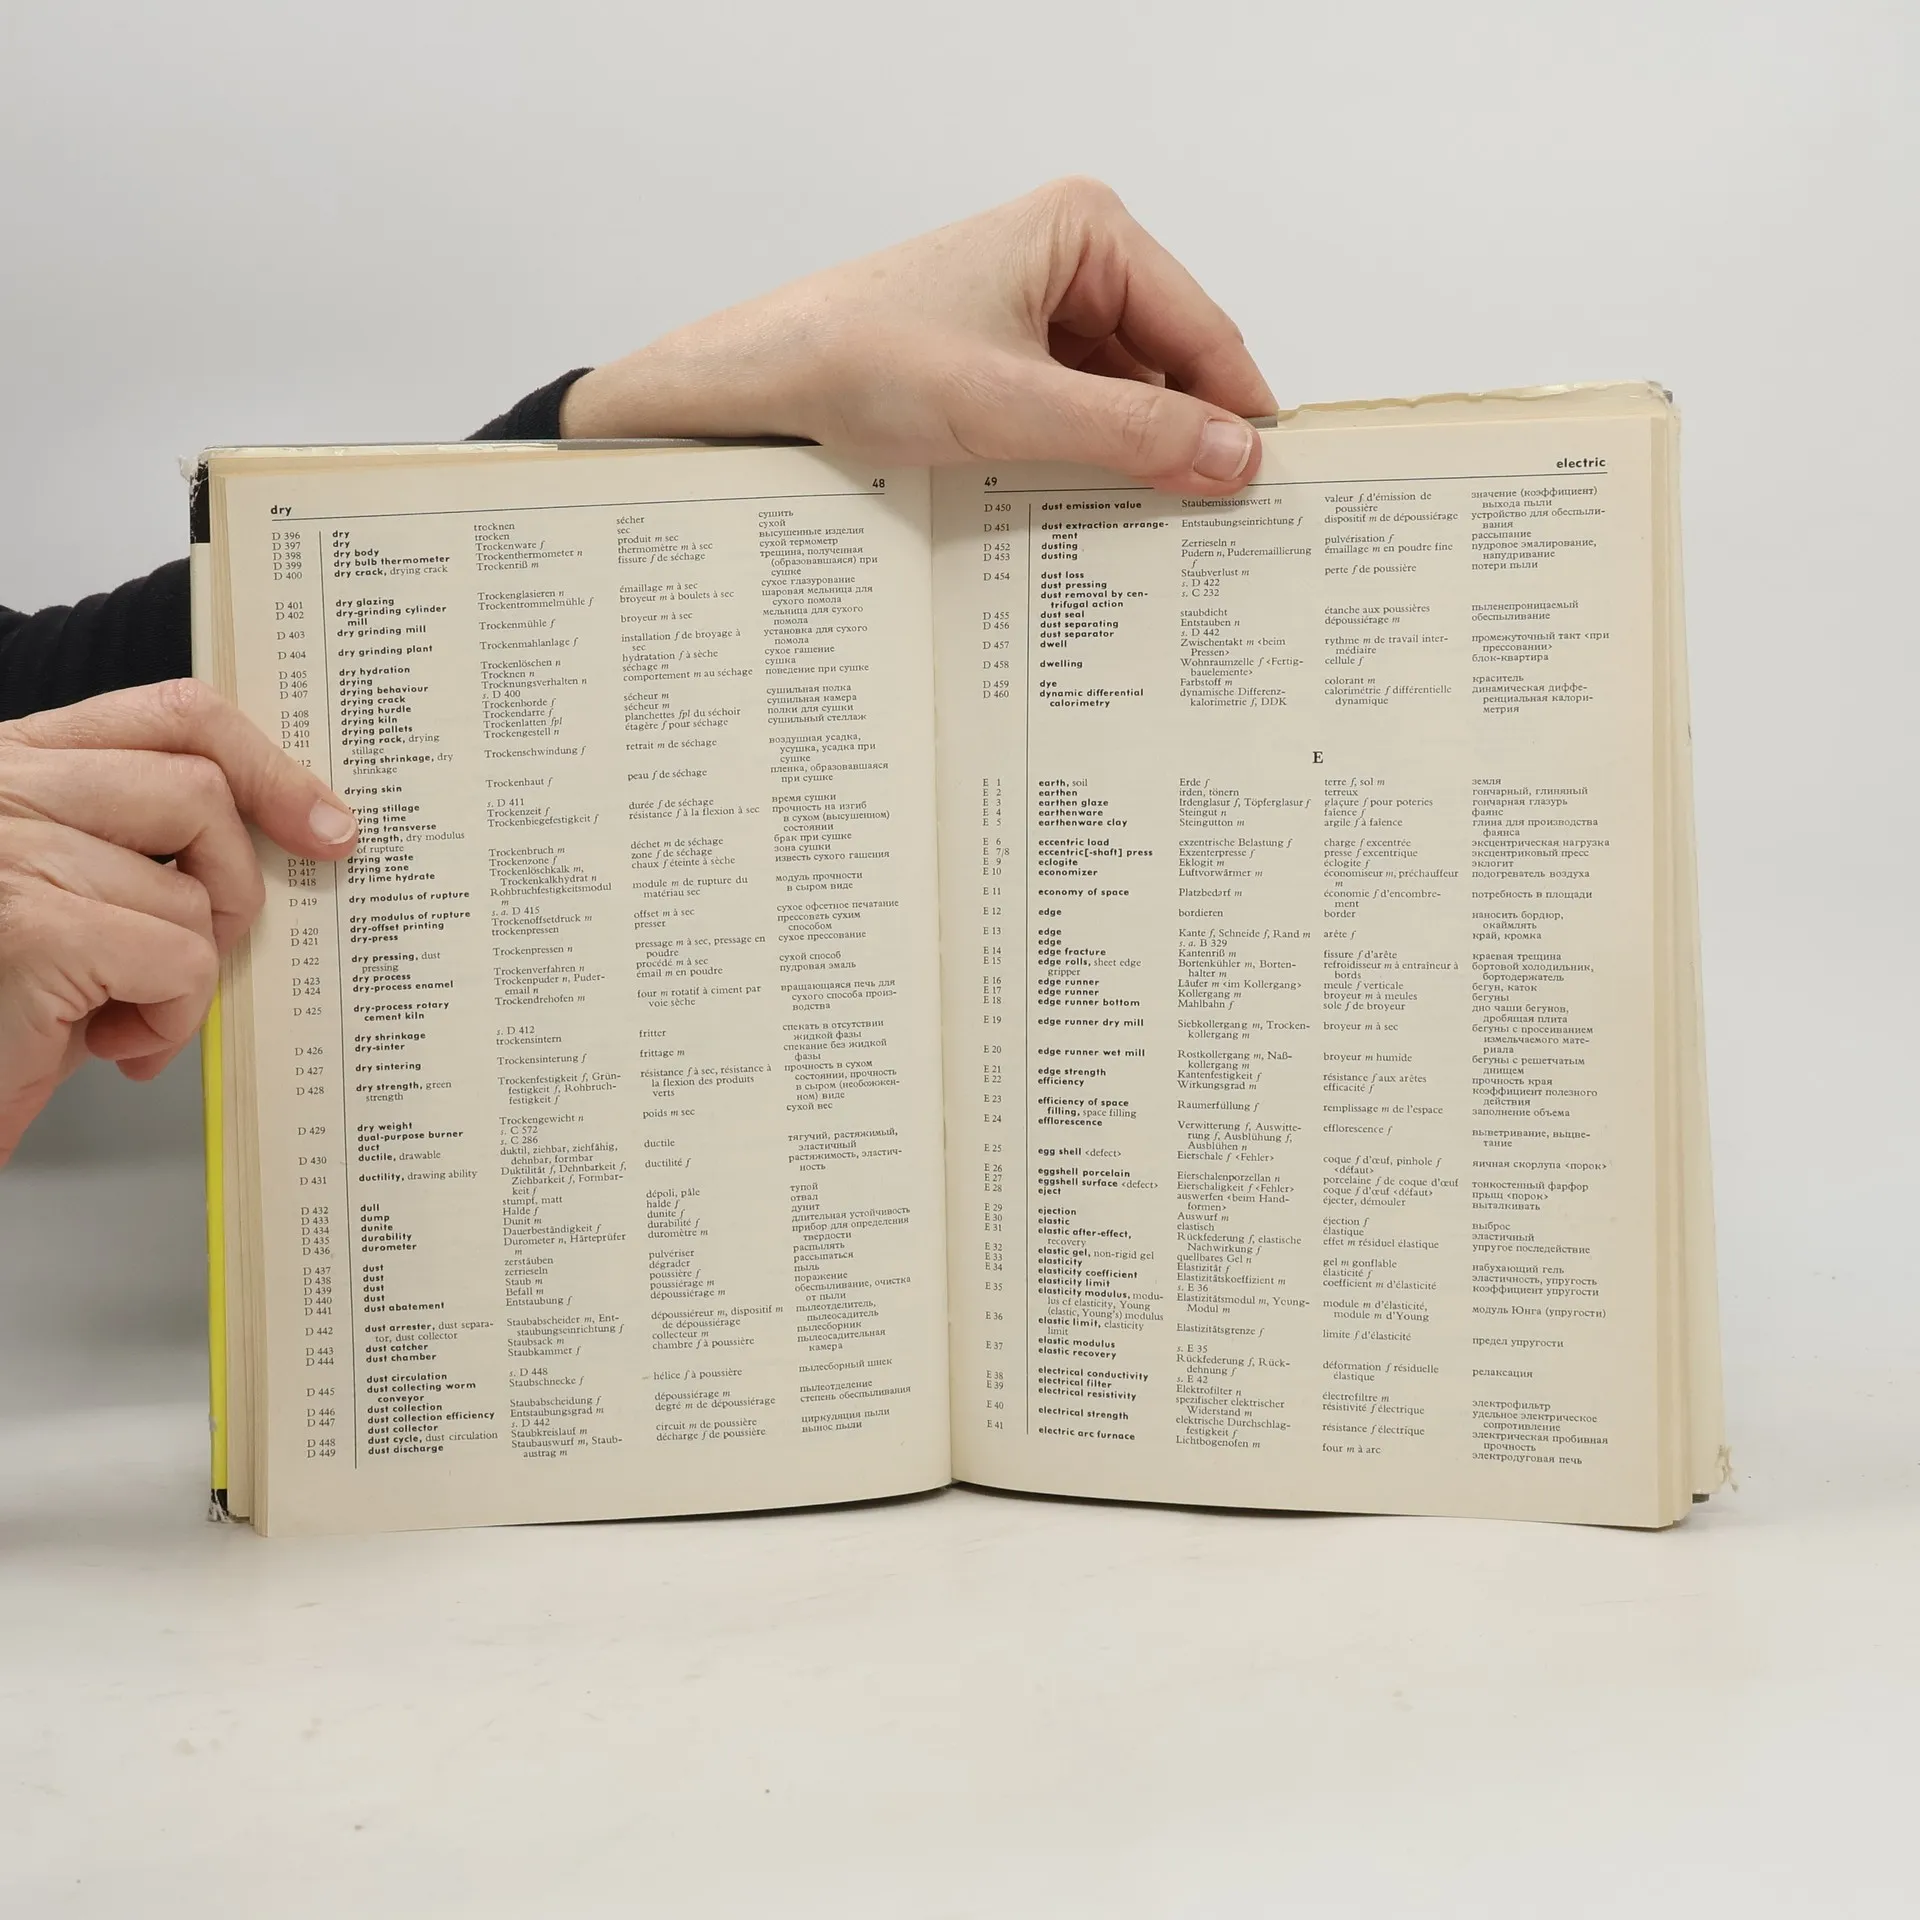 dry 48
D 396 dry trocknen sécher сушить
D 397 dry trocken sec сухой
D 398 dry body Trockenware f produit m sec высушенные изделия
D 399 dry bulb thermometer Trockenthermometer n thermomètre m à sec сухой термометр
D 400 dry crack, drying crack Trockenriß m fissure f de séchage трещина, полученная
(образовавшаяся) при
сушке
D 401 dry glazing Trockenglasieren n émaillage m à sec сухое глазурование
D 402 dry-grinding cylinder Trockentrommelmühle f broyeur m à boulets à sec шаровая мельница для
mill сухого помола
D 403 dry grinding mill Trockenmühle f broyeur m à sec мельница для сухого
помола
D 404 dry grinding plant Trockenmahlanlage f installation f de broyage à установка для сухого
sec помола
D 405 dry hydration Trockenlöschen n hydratation f à sèche сухое гашение
D 406 drying Trocknen n séchage m сушка
D 407 drying behaviour Trocknungsverhalten n comportement m au séchage поведение при сушке
drying crack s. D 400
D 408 drying hurdle Trockenhorde f sécheur m сушильная полка
D 409 drying kiln Trockendarre f sécheur m сушильная камера
D 410 drying pallets Trockenlatten fpl planchettes fpl du séchoir полки для сушки
D 411 drying rack, drying Trockengestell n étagère f pour séchage сушильный стеллаж
stillage
12 drying shrinkage, dry Trockenschwindung f retrait m de séchage воздушная усадка,
shrinkage усушка, усадка при
сушке
drying skin Trockenhaut f peau f de séchage пленка, образовавшаяся
при сушке
rying stillage s. D 411
ying time Trockenzeit f durée f de séchage время сушки
ying transverse Trockenbiegefestigkeit f résistance f à la flexion à sec прочность на изгиб
strength, dry modulus в сухом (высушенном)
of rupture состоянии
D 416 drying waste Trockenbruch m déchet m de séchage брак при сушке
D 417 drying zone Trockenzone f zone f de séchage зона сушки
D 418 dry lime hydrate Trockenlöschkalk m, chaux f éteinte à sèche известь сухого гашения
Trockenkalkhydrat n
D 419 dry modulus of rupture Rohbruchfestigkeitsmodul module m de rupture du модуль прочности
m matériau sec в сыром виде
dry modulus of rupture s. a. D 415
D 420 dry-offset printing Trockenoffsetdruck m offset m à sec сухое офсетное печатание
D 421 dry-press trockenpressen presser прессовать сухим
способом
D 422 dry pressing, dust Trockenpressen n pressage m à sec, pressage en сухое прессование
pressing poudre
D 423 dry process Trockenverfahren n procédé m à sec сухой способ
D 424 dry-process enamel Trockenpuder n, Puder- émail m en poudre пудровая эмаль
email n
D 425 dry-process rotary Trockendrehofen m four m rotatif à ciment par вращающаяся печь для
cement kiln voie sèche сухого способа произ-
водства
dry shrinkage s. D 412
D 426 dry-sinter trockensintern fritter спекать в отсутствии
жидкой фазы
D 427 dry sintering Trockensinterung f frittage m спекание без жидкой
фазы
D 428 dry strength, green Trockenfestigkeit f, Grün- résistance f à sec, résistance à прочность в сухом
strength festigkeit f, Rohbruch- la flexion des produits состоянии, прочность
festigkeit f verts в сыром (необожжен-
ном) виде
D 429 dry weight Trockengewicht n poids m sec сухой вес
dual-purpose burner s. C 572
duct s. C 286
D 430 ductile, drawable duktil, ziehbar, ziehfähig, ductile тягучий, растяжимый,
dehnbar, formbar эластичный
D 431 ductility, drawing ability Duktilität f, Dehnbarkeit f, ductilité f растяжимость, эластич-
Ziehbarkeit f, Formbar- ность
keit f
D 432 dull stumpf, matt dépoli, pâle тупой
D 433 dump Halde f halde f отвал
D 434 dunite Dunit m dunite f дунит
D 435 durability Dauerbeständigkeit f durabilité f длительная устойчивость
D 436 durometer Durometer n, Härteprüfer duromètre m прибор для определения
m твердости
D 437 dust zerstäuben pulvériser распылять
D 438 dust zerrieseln dégrader рассыпаться
D 439 dust Staub m poussière f пыль
D 440 dust Befall m poussiérage m поражение
D 441 dust abatement Entstaubung f dépoussiérage m обеспыливание, очистка
от пыли
D 442 dust arrester, dust separa- Staubabscheider m, Ent- dépoussiéreur m, dispositif m пылеотделитель,
tor, dust collector staubungseinrichtung f de dépoussiérage пылеосадитель
D 443 dust catcher Staubsack m collecteur m пылесборник
D 444 dust chamber Staubkammer f chambre f à poussière пылеосадительная
камера
dust circulation s. D 448
D 445 dust collecting worm Staubschnecke f hélice f à poussière пылесборный шнек
conveyor
D 446 dust collection Staubabscheidung f dépoussiérage m пылеотделение
D 447 dust collection efficiency Entstaubungsgrad m degré m de dépoussiérage степень обеспыливания
dust collector s. D 442
D 448 dust cycle, dust circulation Staubkreislauf m circuit m de poussière циркуляция пыли
D 449 dust discharge Staubauswurf m, Staub- décharge f de poussière вынос пыли
austrag m
49 electric
D 450 dust emission value Staubemissionswert m valeur f d'émission de значение (коэффициент)
poussière выхода пыли
D 451 dust extraction arrange- Entstaubungseinrichtung f dispositif m de dépoussiérage устройство для обеспыли-
ment вания
D 452 dusting Zerrieseln n pulvérisation f рассыпание
D 453 dusting Pudern n, Puderemaillierung émaillage m en poudre fine пудровое эмалирование,
f напудривание
D 454 dust loss Staubverlust m perte f de poussière потери пыли
dust pressing s. D 422
dust removal by cen- s. C 232
trifugal action
D 455 dust seal staubdicht étanche aux poussières пыленепроницаемый
D 456 dust separating Entstauben n dépoussiérage m обеспыливание
dust separator s. D 442
D 457 dwell Zwischentakt m <beim rythme m de travail inter- промежуточный такт <при
Pressen> médiaire прессовании>
D 458 dwelling Wohnraumzelle f <Fertig- cellule f блок-квартира
bauelemente>
D 459 dye Farbstoff m colorant m краситель
D 460 dynamic differential dynamische Differenz- calorimétrie f différentielle динамическая диффе-
calorimetry kalorimetrie f, DDK dynamique ренциальная калори-
метрия
E
E 1 earth, soil Erde f terre f, sol m земля
E 2 earthen irden, tönern terreux гончарный, глиняный
E 3 earthen glaze Irdenglasur f, Töpferglasur f glaçure f pour poteries гончарная глазурь
E 4 earthenware Steingut n faïence f фаянс
E 5 earthenware clay Steingutton m argile f à faïence глина для производства
фаянса
E 6 eccentric load exzentrische Belastung f charge f excentrée эксцентрическая нагрузка
E 7/8 eccentric[-shaft] press Exzenterpresse f presse f excentrique эксцентриковый пресс
E 9 eclogite Eklogit m éclogite f эклогит
E 10 economizer Luftvorwärmer m économiseur m, préchauffeur подогреватель воздуха
m
E 11 economy of space Platzbedarf m économie f d'encombre- потребность в площади
ment
E 12 edge bordieren border наносить бордюр,
окаймлять
E 13 edge Kante f, Schneide f, Rand m arête f край, кромка
edge s. a. B 329
E 14 edge fracture Kantenriß m fissure f d'arête краевая трещина
E 15 edge rolls, sheet edge Bortenkühler m, Borten- refroidisseur m à entraîneur à бортовой холодильник,
gripper halter m bords бортодержатель
E 16 edge runner Läufer m <im Kollergang> meule f verticale бегун, каток
E 17 edge runner Kollergang m broyeur m à meules бегуны
E 18 edge runner bottom Mahlbahn f sole f de broyeur дно чаши бегунов,
дробящая плита
E 19 edge runner dry mill Siebkollergang m, Trocken- broyeur m à sec бегуны с просеиванием
kollergang m измельчаемого мате-
риала
E 20 edge runner wet mill Rostkollergang m, Naß- broyeur m humide бегуны с решетчатым
kollergang m днищем
E 21 edge strength Kantenfestigkeit f résistance f aux arêtes прочность края
E 22 efficiency Wirkungsgrad m efficacité f коэффициент полезного
действия
E 23 efficiency of space Raumerfüllung f remplissage m de l'espace заполнение объема
filling, space filling
E 24 efflorescence Verwitterung f, Auswitte- efflorescence f выветривание, выцве-
rung f, Ausblühung f, тание
Ausblühen n
E 25 egg shell <defect> Eierschale f <Fehler> coque f d'œuf, pinhole f яичная скорлупа <порок>
<défaut>
E 26 eggshell porcelain Eierschalenporzellan n porcelaine f de coque d'œuf тонкостенный фарфор
E 27 eggshell surface <defect> Eierschaligkeit f <Fehler> coque f d'œuf <défaut> прыщ <порок>
E 28 eject auswerfen <beim Hand- éjecter, démouler выталкивать
formen>
E 29 ejection Auswurf m éjection f выброс
E 30 elastic elastisch élastique эластичный
E 31 elastic after-effect, Rückfederung f, elastische effet m résiduel élastique упругое последействие
recovery Nachwirkung f
E 32 elastic gel, non-rigid gel quellbares Gel n gel m gonflable набухающий гель
E 33 elasticity Elastizität f élasticité f эластичность, упругость
E 34 elasticity coefficient Elastizitätskoeffizient m coefficient m d'élasticité коэффициент упругости
elasticity limit s. E 36
E 35 elasticity modulus, modu- Elastizitätsmodul m, Young- module m d'élasticité, модуль Юнга (упругости)
lus of elasticity, Young Modul m module m d'Young
(elastic, Young's) modulus
E 36 elastic limit, elasticity Elastizitätsgrenze f limite f d'élasticité предел упругости
limit
elastic modulus s. E 35
E 37 elastic recovery Rückfederung f, Rück- déformation f résiduelle релаксация
dehnung f élastique
electrical conductivity s. E 42
E 38 electrical filter Elektrofilter n électrofiltre m электрофильтр
E 39 electrical resistivity spezifischer elektrischer résistivité f électrique удельное электрическое
Widerstand m сопротивление
E 40 electrical strength elektrische Durchschlag- résistance f électrique электрическая пробивная
festigkeit f прочность
E 41 electric arc furnace Lichtbogenofen m four m à arc электродуговая печь